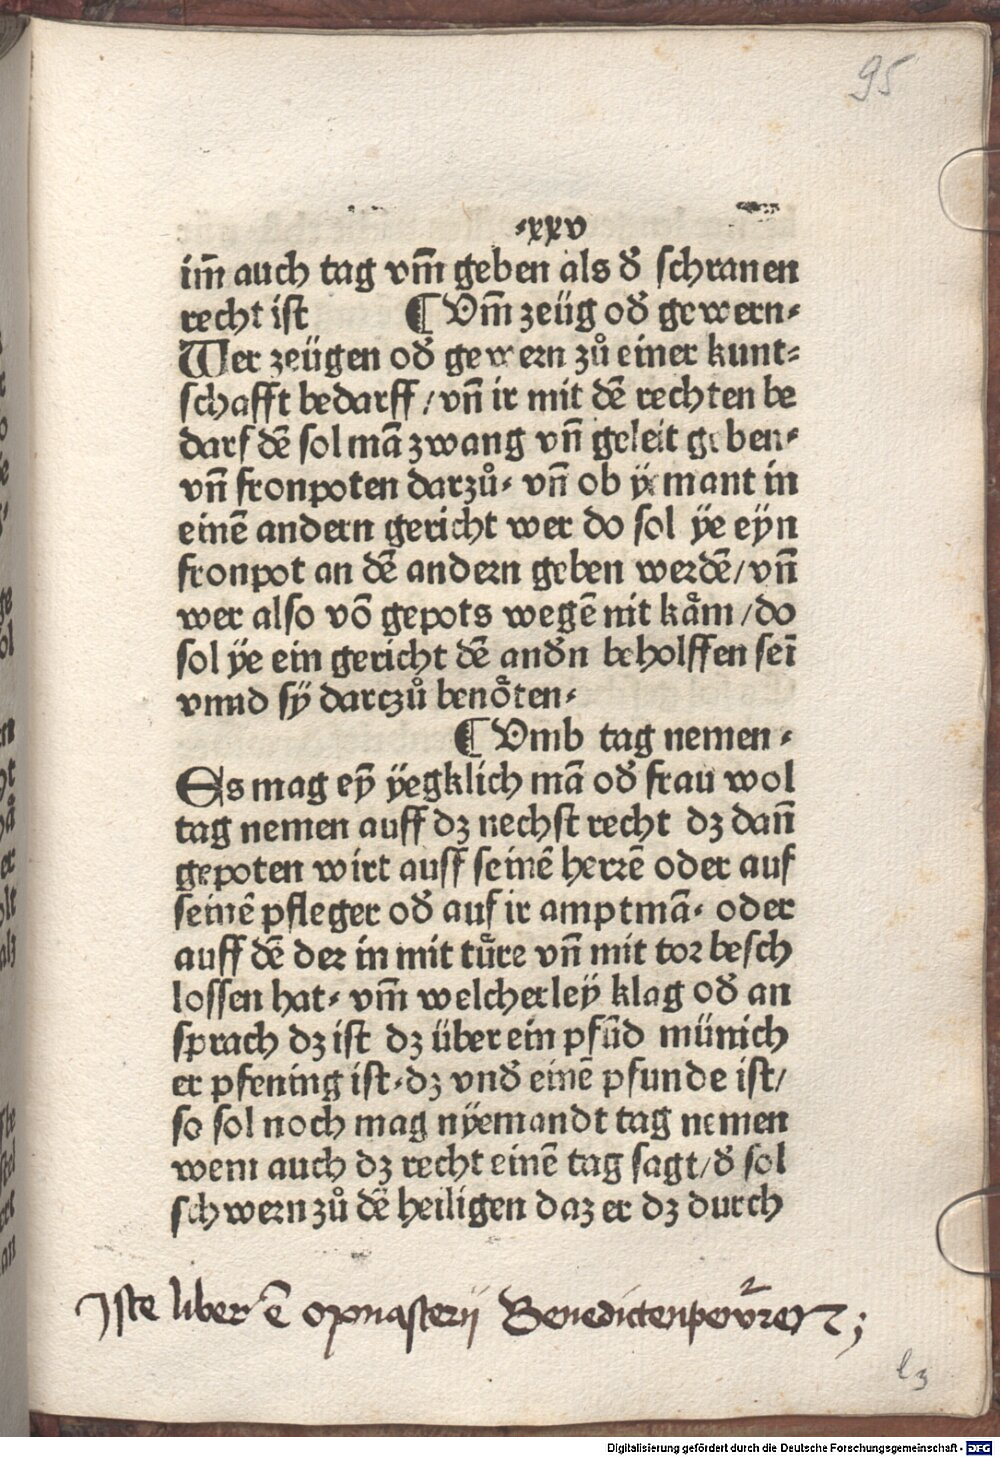 95
·xxv
im̄ auch tag vm̄ geben als d̕ schranen
recht ist ¶ Vm̄ zeüg od̕ gewern⸗
Wer zeügen od̕ gewern zů einer kunt⸗
schafft bedarff / vn̄ ir mit dē rechten be
darf dē sol mā zwang vn̄ geleit geben⸗
vn̄ fronpoten darzů⸗ vn̄ ob yemant in
einē andern gericht wer do sol ÿe eyn
fronpot an dē andern geben werdē / vn̄
wer also vō gepots wegē nit kåm / do
sol ÿe ein gericht dē and̕n beholffen seī
vnnd sÿ darczů benöten⸗
¶ Vmb tag nemen⸗
Es mag eȳ ÿegklich mā od̕ frau wol
tag nemen auff dz nechst recht dz dan̄
gepoten wirt auff seinē herrē oder auf
seinē pfleger od̕ auf ir amptmā⸗ oder
auff dē der in mit tu̇re vn̄ mit tor besch
lossen hat⸗ vm̄ welcherleÿ klag od̕ an
sprach dz ist dz über ein pfūd münich
er pfening ist⸗ dz vnd̕ einē pfunde ist /
so sol noch mag nÿemandt tag nemen
wem auch dz recht einē tag sagt / d̕ sol
schwern zů dē heiligen daz er dz durch
Iste liber ē
l3
Digitalisierung gefördert durch die Deutsche Forschungsgemeinschaft - DFG